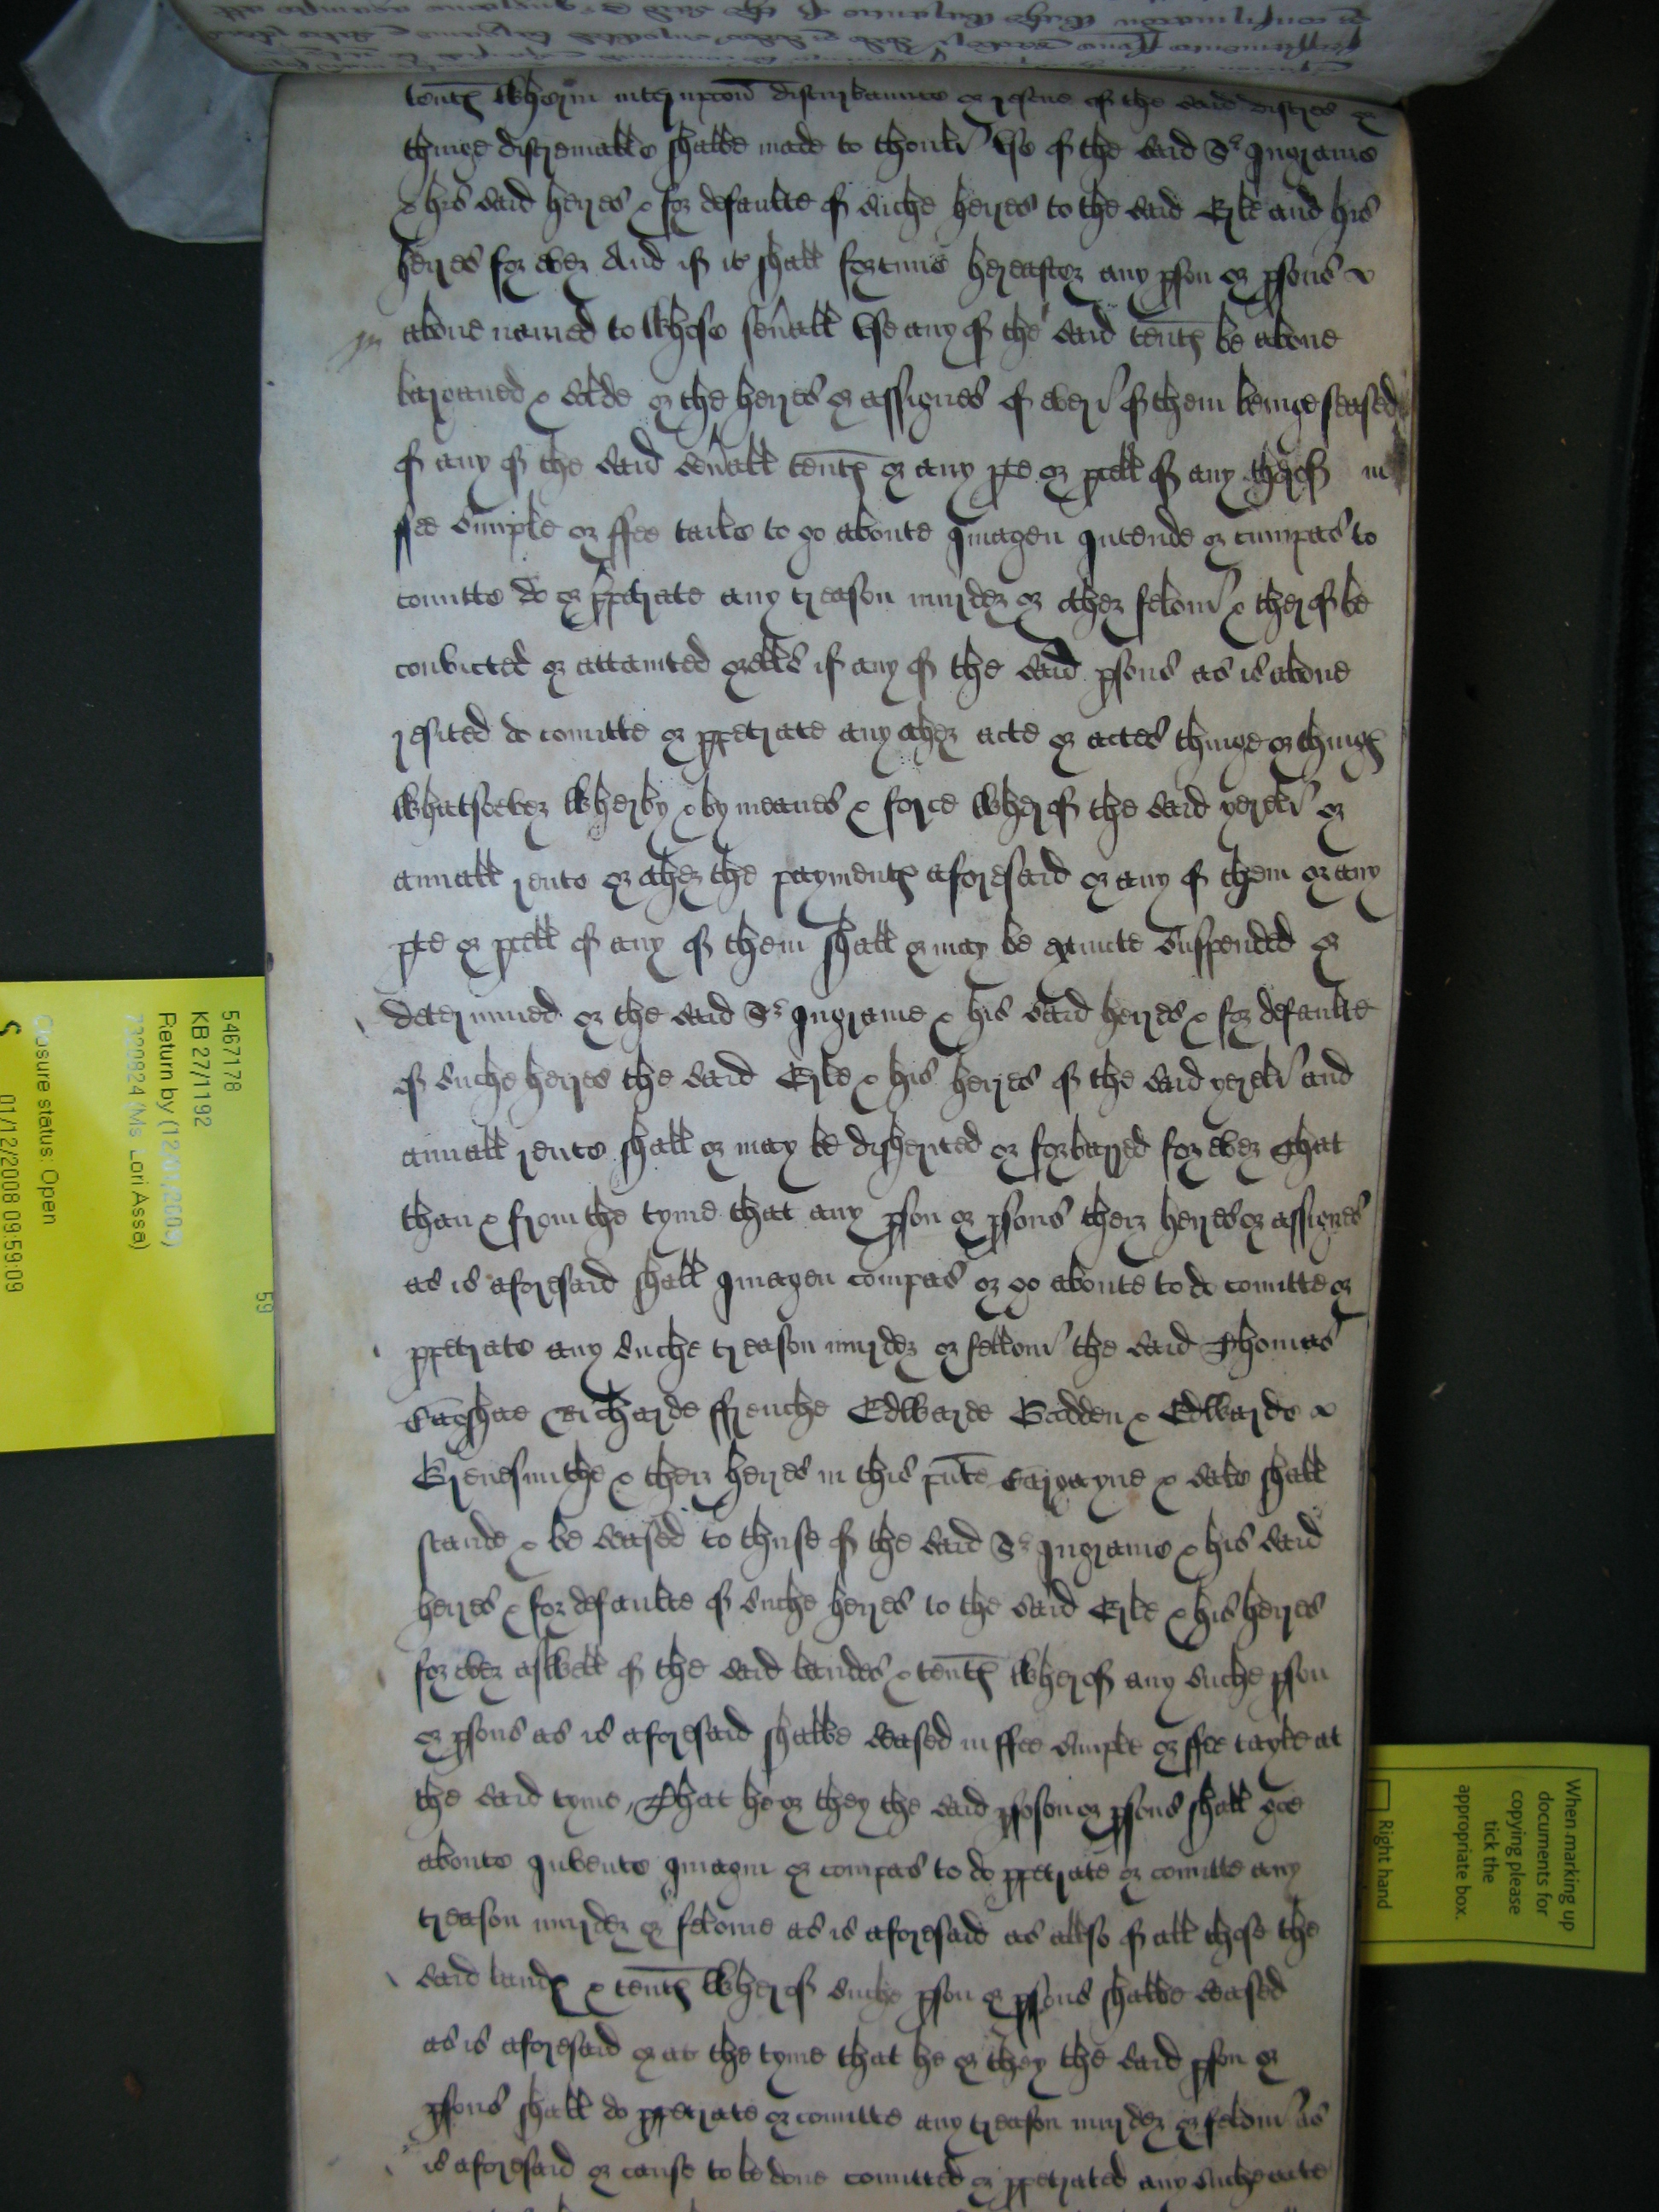 tent͠ wherin int͛rupcōn disturbaunce or rescue of the said distres or
thinge distreinable shalbe made to thonly use of the said Sr Ingrame
& his said heyres & for defaulte of suche heyres to the said Erle and his
heyres for ever And if it shall fortune hereafter any pson or psons
above named to whose sev͛all use any of the said tent͠ be above
barganed & solde or the heyres or assignes of every of them beinge seased
of any of the said sev͛all tent͠ or any pte or pcell of any therof in
ffee simple or ffee taile to go aboute Imagen Intende or cumpas to
comitte do or ppetrate any treason murder or other felony & therof be
convicted or attainted orells if any of the said psons as is above
resited do comitte or ppetrate any other acte or actes thinge or thing͠
whatsoever wherby & by meanes & force wherof the said yerely or
anuall rente or other the payment͠ aforesaid or any of them or any
pte or pcell of any of them shall or may be extincte suspended or
determined or the said Sr Ingrame & his said heyres & for defaulte
of suche heyres the said Erle & his heyres of the said yerely and
anuall rente shall or may be disherited or forbarred for ever That
than & from the tyme that any pson or psons their heyres or assignes
as is aforesaid shall Imagen compas or go aboute to do comitte or
ppetrate any suche treason murder or fellony the said Thomas
Richarde ffrenche Edwarde & Edwarde
Grenesmithe & their heyres in this pn̄te bargayne & sale shall
stande & be seased to thuse of the said Sr Ingrame & his said
heyres & for defaulte of suche heyres to the said Erle & his heyres
for ever aswell of the said landes & tent͠ wherof any suche pson
or psons as is aforesaid shalbe seased in ffee simple or ffee tayle at
the said tyme That he or they the said psoson or psons shall goe
aboute Invente Imagin or compas to do ppetrate or comitte any
treason murder or felonie as is aforesaid as allso of all those the
said land͠ & tent͠ wherof suche pson or psons shalbe seased
as is aforesaid or at the tyme that he or they the said pson or
psons shall do ppetrate or comitte any treason murder or felony as
is aforesaid or cause to be done comitted or ppetrated any suche acte
5467178
KB 27/1192
Return by (12/01/2009)
(Ms. Lori Assa)
Closure status: Open
01/12/2008 09:59:09
S
59
When marking up
documents for
copying please
tick the
appropriate box.
Right hand